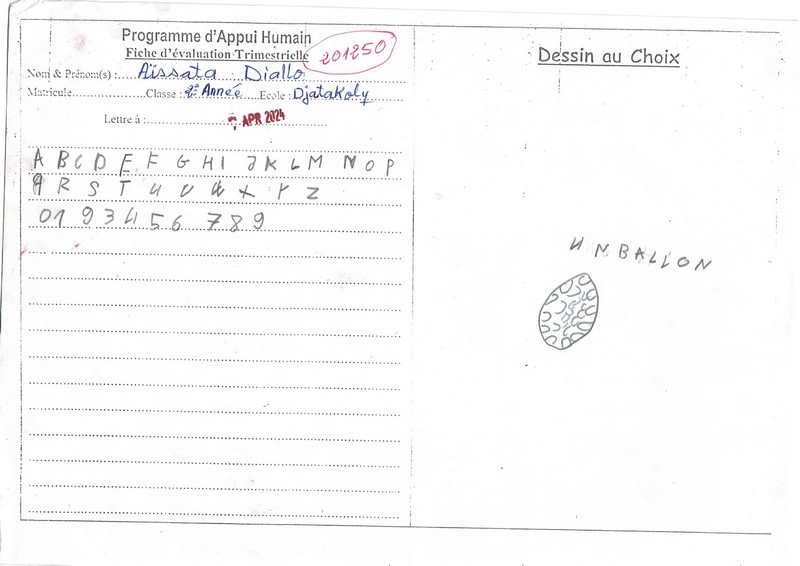 Programme d'Appui Humain
Fiche d'évaluation Trimestrielle
201250
Nom & Prénom(s) : Aïssata Diallo
Matricule Classe : 2e Année Ecole : Djatakoly
Lettre à :
APR 2024
A B C D E F G H I J K L M N O P
q R S T U V W X Y Z
0 1 9 3 4 5 6 7 8 9
Dessin au Choix
UN BALLON